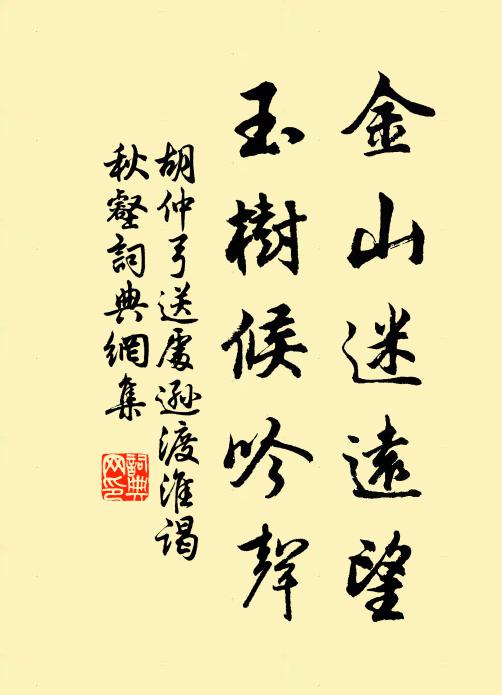 金山迷遠望
玉樹候吟聲
胡仲弓送處遜渡淮謁
秋壑詞典網集
詞典网印